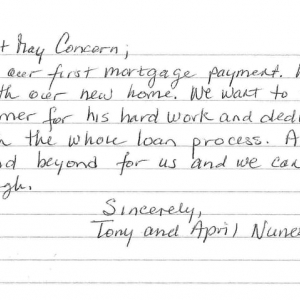 May Concern;
our first mortgage payment.
our new home. We want to
for his hard work and
the whole loan process.
beyond for us and we can

Sincerely,
Tony and April